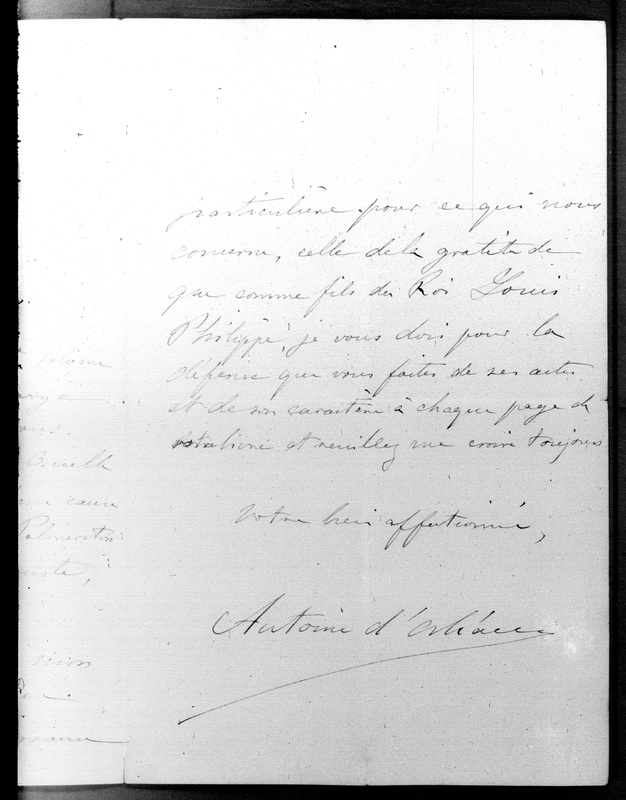 particulière pour ce qui nous
concerne, celle de la gratitude
que comme fils du Roi Louis
Philippe, je vous dois pour la
défense que vous faites de ses actes
et de son caractère à chaque page de
votre livre et veuillez me croire toujours
Votre bien affectionné,
Antoine d'Orléans
Bulwer